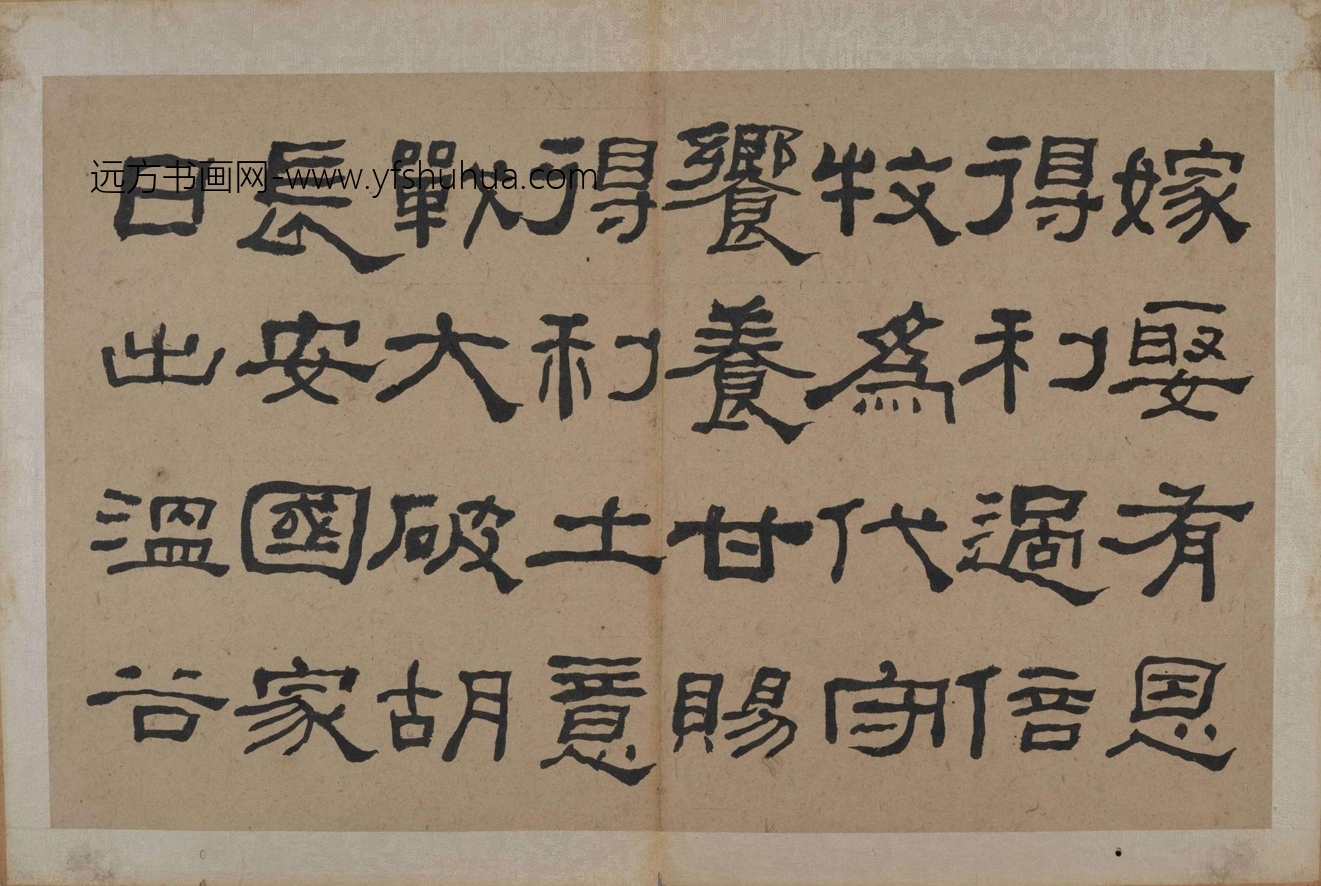 嫁娶有恩
得利過倍
牧為代守
饗養甘賜
得利土意
戰大破胡
長安國家
日出溫谷
远方书画网-www.yfshuhua.com